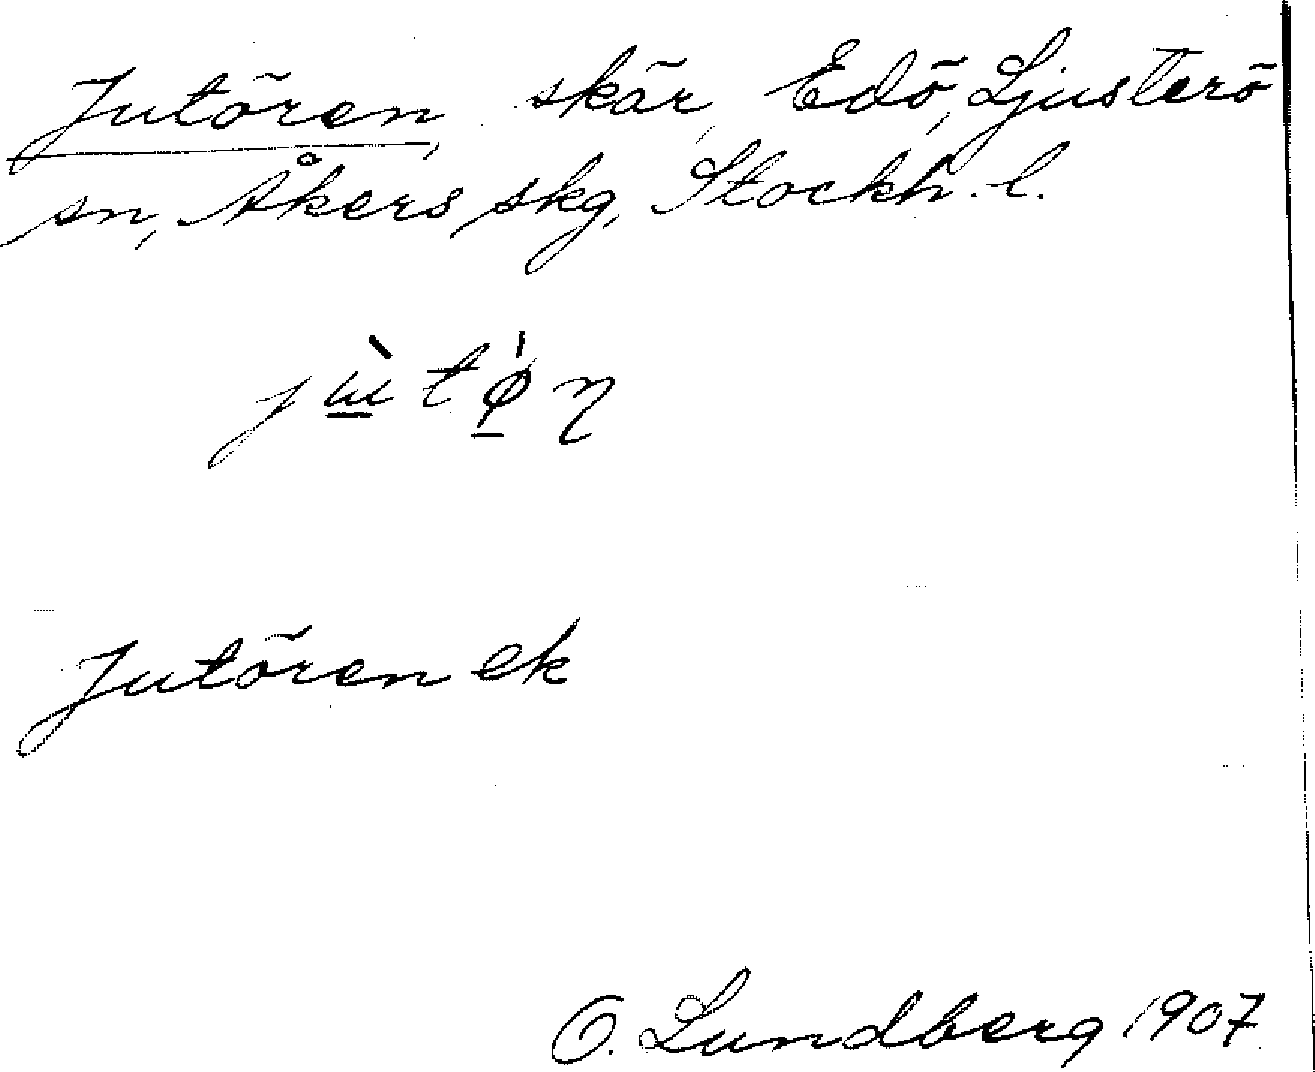 Jutören, skär, Edö, Ljusterö
sn, Åkers skg, Stockh. l.
jɯ̲̀tø̲̍η
Jutören ek
O. Lundberg 1907